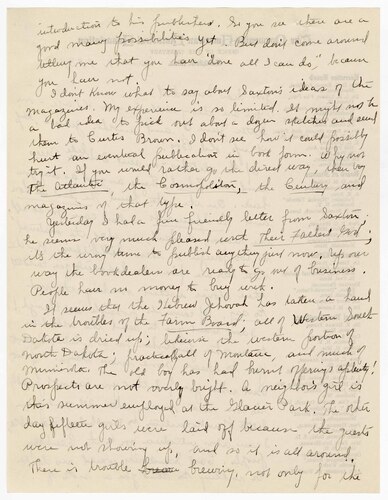 introduction to his publishers. So you see there are a
good many possibilities yet. But don't come around
telling me that you have "done all I can do" because
you have not.
I don't know what to say about Saxton's ideas of the
magazines. My experience is so limited. It might not be
a bad idea to pick out about a dozen sketches and send
them to Curtis Brown. I don't see how it could possibly
hurt an eventual publication in book form. Why not
try it. If you would rather go the direct way, then try
the Atlantic, the Cosmopolitan, the Century and
magazines of that type.
Yesterday I had a fine friendly letter from Saxton;
he seems very much pleased with Their Fathers God.
It's the wrong time to publish anything just now. Up our
way the bookdealers are ready to go out of business.
People have no money to buy with.
It seems that the Hebrew Jehovah has taken a hand
in the troubles of the Farm Board; all of Western South
Dakota is dried up; likewise the western portion of
North Dakota; practically all of Montana, and much of
Minnesota. The old boy has had burnt offerings aplenty!
Prospects are not overly bright. A neighbor's girl is
this summer employed at the Glacier Park. The other
day fifteen girls were laid off because the guests
were not showing up, and so it is all around.
There is trouble brewing, not only for the